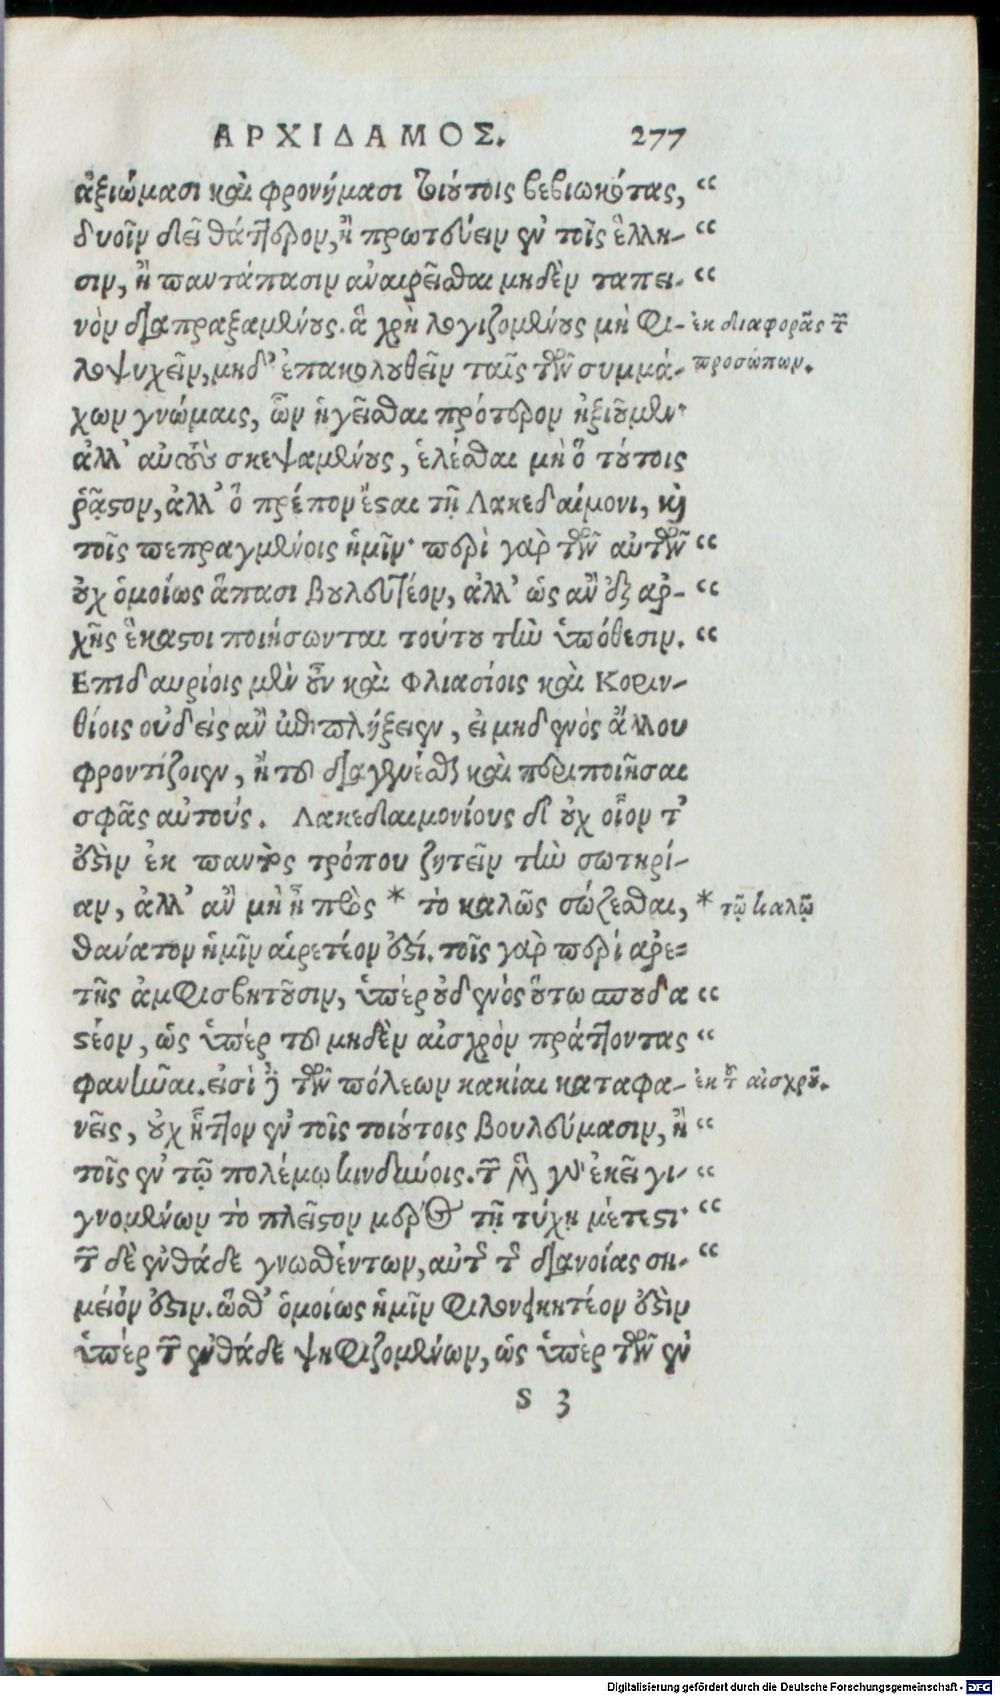 ΑΡΧΙΔΑΜΟΣ. 277
ἀξιώμασι καὶ φρονήμασι τιούτοις βεβιωκότας, “
δυοῖν δεῖ θάτερον, ἢ πρωτεύειν ἐν τοῖς ἕλλη- “
σιν, ἢ παντάπασιν ἀναιρεῖσθαι μηδὲν ταπει- “
νὸν διαπραξαμένους. ἃ χρὴ λογιζομένους μὴ φι- ἐκ διαφορᾶς τῶν
λοψυχεῖν, μηδ' ἐπακολουθεῖν ταῖς τῶν συμμά- προσώπων.
χων γνώμαις, ὧν ἡγεῖσθαι πρότερον ἠξιοῦμεν·
ἀλλ' αὐτοὺς σκεψαμένους, ἑλέσθαι μὴ ὃ τούτοις
ῥᾷστον, ἀλλ' ὃ πρέπον ἔσται τῇ Λακεδαίμονι, καὶ
τοῖς πεπραγμένοις ἡμῖν· περὶ γὰρ τῶν αὐτῶν “
οὐχ ὁμοίως ἅπασι βουλευτέον, ἀλλ' ὡς ἂν ἐξ ἀρ- “
χῆς ἕκαστοι ποιήσωνται τούτου τὴν ὑπόθεσιν. “
Επιδαυρίοις μὲν οὖν καὶ Φλιασίοις καὶ Κοριν-
θίοις οὐδεὶς ἂν ἐπιπλήξειεν, εἰ μηδενὸς ἄλλου
φροντίζοιεν, ἢ τοῦ διαγενέσθαι καὶ περιποιῆσαι
σφᾶς αὐτούς. Λακεδαιμονίους δ' οὐχ οἷόν τ'
ἐστὶν ἐκ παντὸς τρόπου ζητεῖν τὴν σωτηρί-
αν, ἀλλ' ἂν μὴ ᾖ πρὸς * τὸ καλῶς σώζεσθαι, * τῷ καλῷ
θάνατον ἡμῖν αἱρετέον ἐστί. τοῖς γὰρ περὶ ἀρε-
τῆς ἀμφισβητοῦσιν, ὑπὲρ οὐδενὸς οὕτω σπουδα “
στέον, ὡς ὑπὲρ τοῦ μηδὲν αἰσχρὸν πράττοντας “
φανῆναι. εἰσὶ δὲ τῶν πόλεων κακίαι καταφα- ἐκ τοῦ αἰσχροῦ.
νεῖς, οὐχ ἧττον ἐν τοῖς τοιούτοις βουλεύμασιν, ἢ “
τοῖς ἐν τῷ πολέμῳ κινδύνοις. τῶν μὲν γὰρ ἐκεῖ γι- “
γνομένων τὸ πλεῖστον μέρος τῇ τύχῃ μέτεστι· “
τῶν δὲ ἐνθάδε γνωσθέντων, αὐτῆς τῆς διανοίας ση- “
μεῖόν ἐστιν. ὥσθ' ὁμοίως ἡμῖν φιλονεικητέον ἐστὶν
ὑπὲρ τῶν ἐνθάδε ψηφιζομένων, ὡς ὑπὲρ τῶν ἐν
S 3
Digitalisierung gefördert durch die Deutsche Forschungsgemeinschaft - DFG